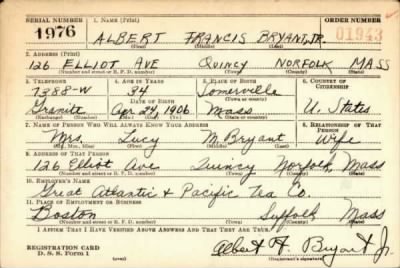 SERIAL NUMBER 1. NAME (Print) ORDER NUMBER
1976 ALBERT FRANCIS BRYANT, JR. 01943
(First) (Middle) (Last)
2. ADDRESS (Print)
126 ELLIOT AVE QUINCY NORFOLK MASS
(Number and street or R. F. D. number) (Town) (County) (State)
3. TELEPHONE 4. AGE IN YEARS 5. PLACE OF BIRTH 6. COUNTRY OF CITIZENSHIP
7388-W 34 Somerville
DATE OF BIRTH (Town or county)
Granite Apr. 24, 1906 Mass U. States
(Exchange) (Mo.) (Day) (Yr.) (State or country)
7. NAME OF PERSON WHO WILL ALWAYS KNOW YOUR ADDRESS 8. RELATIONSHIP OF THAT PERSON
Mrs. Lucy M. Bryant Wife
(Mr., Mrs., Miss) (First) (Middle) (Last)
9. ADDRESS OF THAT PERSON
126 Elliot Ave Quincy Norfolk, Mass
(Number and street or R. F. D. number) (Town) (County) (State)
10. EMPLOYER'S NAME
Great Atlantic & Pacific Tea Co.
11. PLACE OF EMPLOYMENT OR BUSINESS
Boston Suffolk Mass
(Number and street or R. F. D. number) (Town) (County) (State)
I AFFIRM THAT I HAVE VERIFIED ABOVE ANSWERS AND THAT THEY ARE TRUE.
REGISTRATION CARD
D. S. S. Form 1 (over) Albert F. Bryant Jr.
(Registrant's signature)